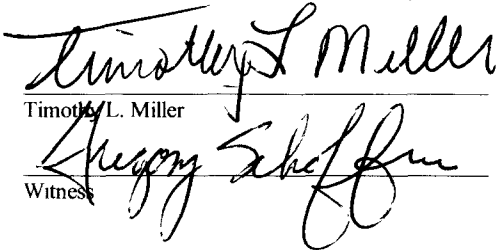 Timothy L Miller
Timothy L. Miller
Gregory
Witness